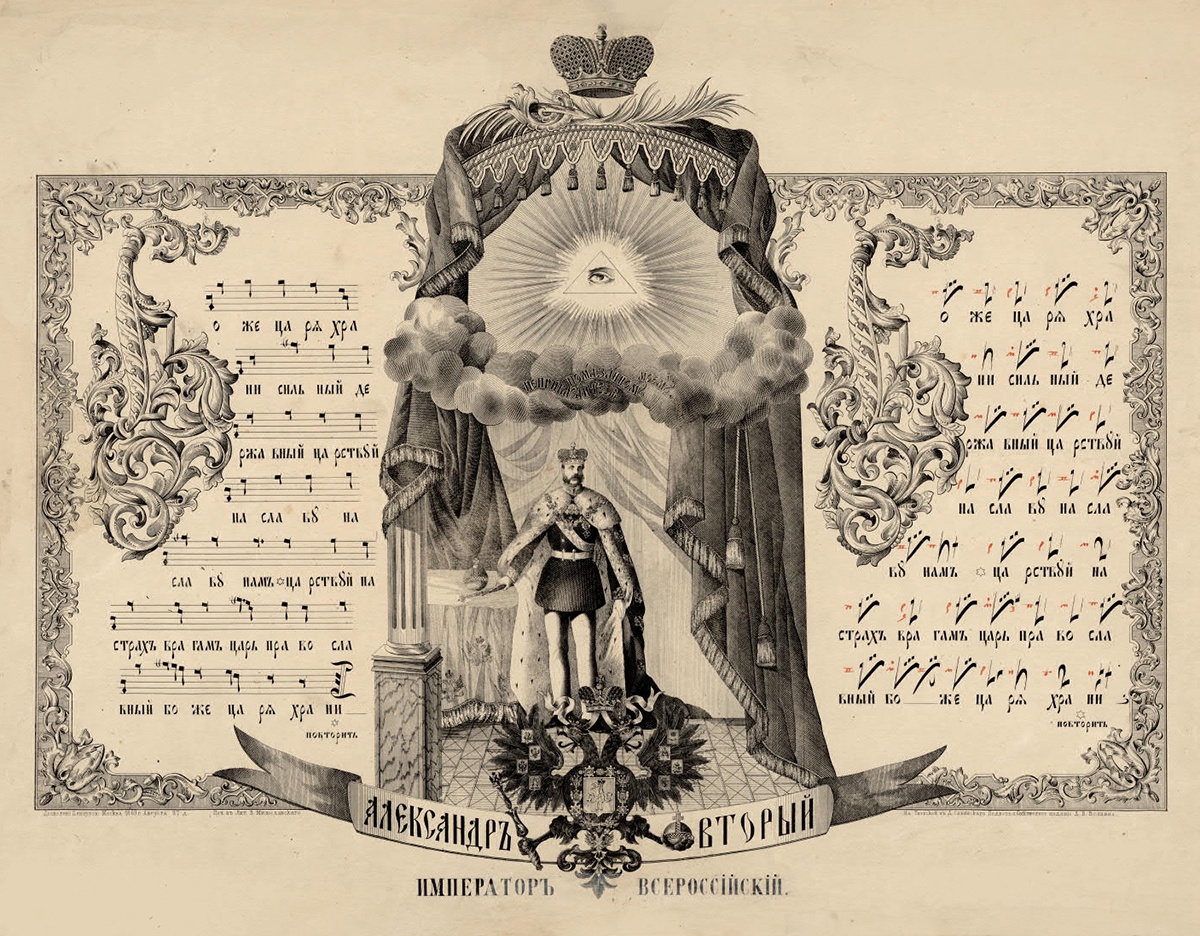 Б о же ца рѧ хра
ни силь ный де
ржа вный ца рствꙋй
на сла вꙋ на
сла вꙋ намъ ца рствꙋй на
страхъ вра гамъ царь пра во сла
вный бо же ца рѧ хра ни
повторить
Б о же ца рѧ хра
ни силь ный де
ржа вный ца рствꙋй
на сла вꙋ на сла
вꙋ намъ ца рствꙋй на
страхъ вра гамъ царь пра во сла
вный бо же ца рѧ хра ни
повторить
АЛЕКСАНДРЪ ВТОРЫЙ
ИМПЕРАТОРЪ ВСЕРОССІЙСКІЙ.